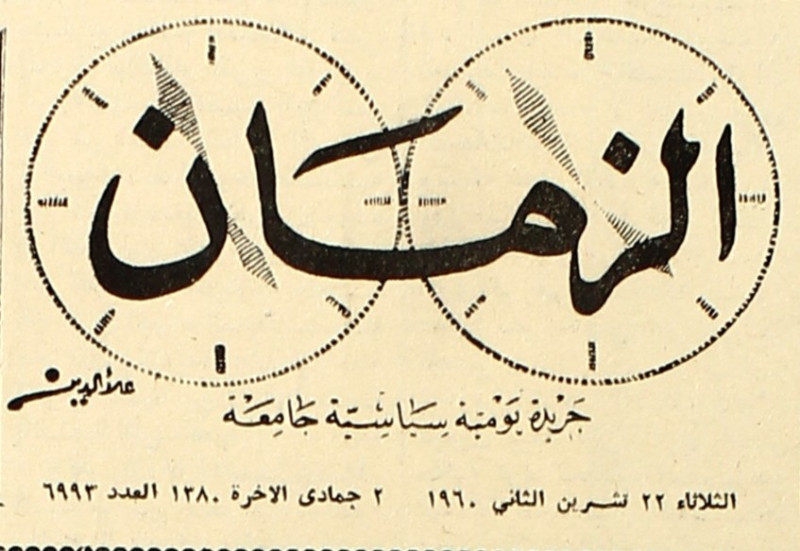 الزمان
علاء الدين
جريدة يومية سياسية جامعة
الثلاثاء ٢٢ تشرين الثاني ١٩٦٠ ٢ جمادى الاخرة ١٣٨٠ العدد ٦٩٩٣